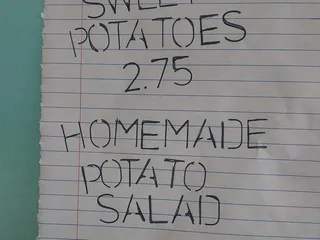 SWEET
POTATOES
2.75
HOMEMADE
POTATO
SALAD